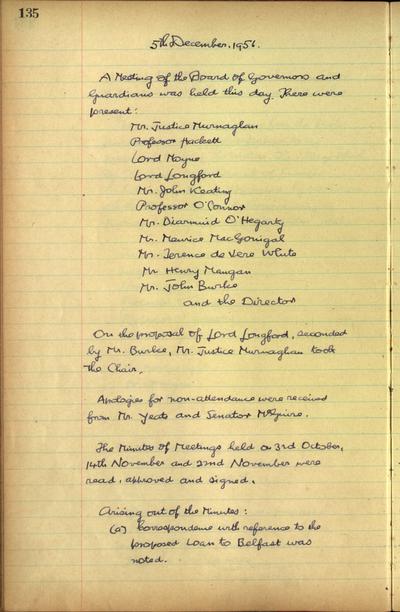 135
5th December, 1956.
A Meeting of the Board of Governors and
Guardians was held this day. There were
present:
Mr. Justice Murnaghan
Professor Hackett
Lord Moyne
Lord Longford
Mr. John Keating
Professor O'Connor
Mr. Diarmuid O'Hegarty
Mr. Maurice MacGonigal
Mr. Terence de Vere White
Mr Henry Mangan
Mr. John Burke
and the Director
On the proposal of Lord Longford, seconded
by Mr. Burke, Mr. Justice Murnaghan took
the Chair.
Apologies for non-attendance were received
from Mr. Yeats and Senator McGuire.
The Minutes of Meetings held on 3rd October,
14th November and 22nd November were
read, approved and signed.
Arising out of the Minutes:
(a) Correspondence with reference to the
proposed Loan to Belfast was
noted.